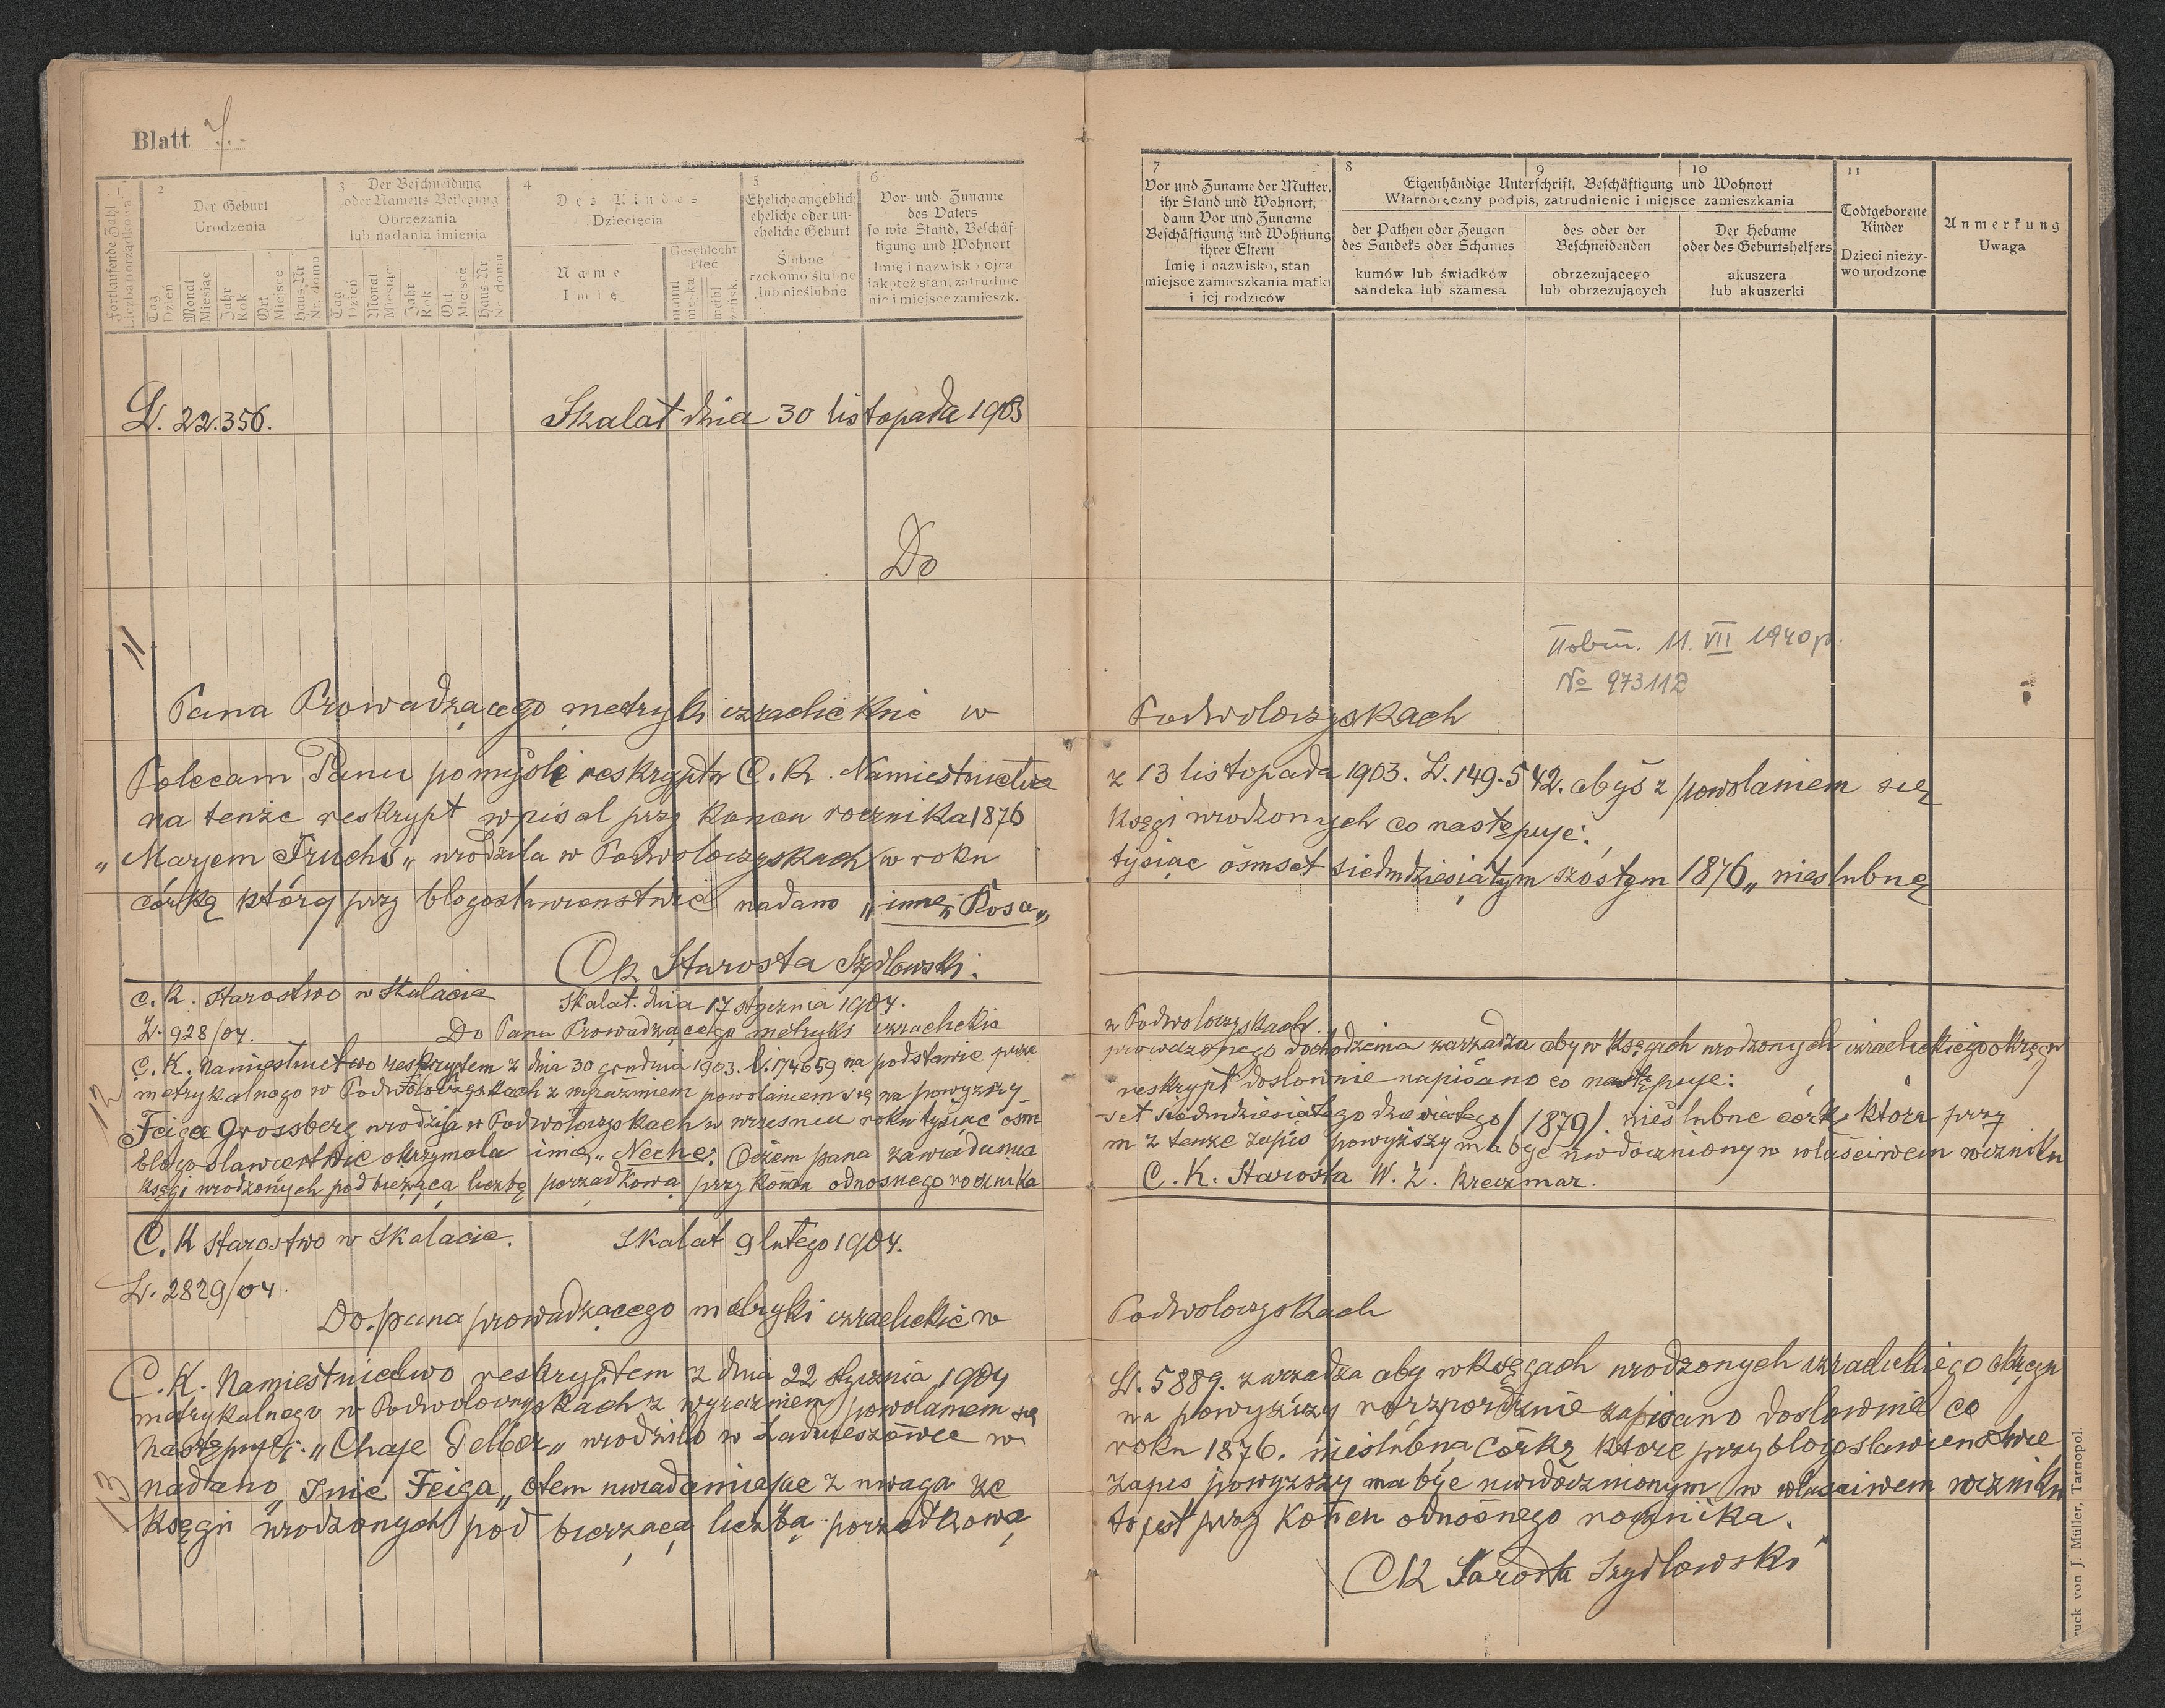 Blatt 7.-
1
Fortlaufende Zahl
Liczba porządkowa
2
Der Geburt
Urodzenia
Tag
Dzień
Monat
Miesiąc
Jahr
Rok
Ort
Miejsce
Haus-Nr
Nr. domu
3
Der Beschneidung
oder Namens Beilegung
Obrzezania
lub nadania imienia
Tag
Dzień
Monat
Miesiąc
Jahr
Rok
Ort
Miejsce
Haus-Nr
Nr. domu
4
Des Kindes
Dziecięcia
Name
Imię
Geschlecht
Płeć
männl
męska
weibl
żeńsk.
5
Eheliche angeblich
eheliche oder un-
eheliche Geburt
Ślubne
rzekomo ślubne
lub nieślubne
6
Vor- und Zuname
des Vaters
so wie Stand, Beschäf-
tigung und Wohnort
Imię i nazwisko ojca
jakoteż stan, zatrudnie
nie i miejsce zamieszk.
7
Vor und Zuname der Mutter,
ihr Stand und Wohnort,
dann Vor und Zuname
Beschäftigung und Wohnung
ihrer Eltern
Imię i nazwisko, stan
miejsce zamieszkania matki
i jej rodziców
8
9
10
Eigenhändige Unterschrift, Beschäftigung und Wohnort
Własnoręczny podpis, zatrudnienie i miejsce zamieszkania
der Pathen oder Zeugen
des Sandeks oder Schames
kumów lub świadków
sandeka lub szamesa
des oder der
Beschneidenden
obrzezującego
lub obrzezujących
Der Hebame
oder des Geburtshelfers
akuszera
lub akuszerki
11
Todtgeborene
Kinder
Dzieci nieży-
wo urodzone
Anmerkung
Uwaga
L. 22.356. Skalat dnia 30 listopada 1903
Do
11
11. VII 1940 р.
№ 973112
Pana Prowadzącego metryki izraelickie w Podwołoczyskach
Polecam Panu pomyśli reskryptu C. K. Namiestnictwa z 13 listopada 1903. L. 149.542. abyś z powołaniem się
na tenże reskrypt wpisał przy koncu rocznika 1876 Księgi urodzonych co następuje:
"Maryem Fruchs" urodziła w Podwołoczyskach w roku tysiąc ośmset siedmdziesiątym szóstym 1876 " nieslubną
córką którą przy błogosławienstwie nadano "imię" Rosa"
Ck Starosta Szydłowski.
C. K. Starostwo w Skalacie Skalat. dnia 17 stycznia 1904.
L. 928/04. Do Pana Prowadzącego metryki izraelickie w Podwołoczyskach.
12
C. K. Namiestnictwo reskryptem z dnia 30 grudnia 1903. L. 174659 na podstawie prze prowadzonego dochodzenia zarządza aby w księgach urodzonych izraelickiego okręgu
metrykalnego w Podwołoczyskach z wyraźniem powołaniem się na powyższy reskrypt dosłownie napisano co następuje:
Feige Grossberg urodziła w Podwołoczyskach w wrzesniu roku tysiąc ośm set siedmdziesiątego dziewiatego /1879/. nieślubne córkę która przy
błogosławienstwie otrzymała imię "Neche." Oczem pana zawiadamia m z tenże zapis powyższy ma być uwdoczniony w właściwem roczniku
księgi urodzonych pod bieżącą liczbę porządkową przy końcu odnosnego rocznika C. K. Starosta W. Z. Kreczmar.
C. K Starostwo w Skalacie. Skalat 9 lutego 1904.
L. 2829/04.
Do. pana prowadzącego metryki izraelickie w Podwołoczyskach
13
C. K. Namiestnictwo reskryptem z dnia 22 stycznia 1904 L. 5889. zarzadza aby w księgach urodzonych izraelickiego okręgu
metrykalnego w Podwołoczyskach z wyrazniem powołaniem się na powyższy rozpordznie zapisano dosłownie co
następuje: "Chaje Gelber" urodziła w Zaduieszówce w roku 1876. nieslubna córkę ktore przy błogosławienstwie
nadano "Imie Feiga" otem uwiadamiając z uwaga ze zapis powyzszy ma być uwidocznionym w właściwem roczniku
Księgi urodzonych pod bierzącą liczbą porządkową to jest przy końcu odnośnego rocznika.
CK Starosta Szydłowski
ruck von J. Müller, Tarnopol.